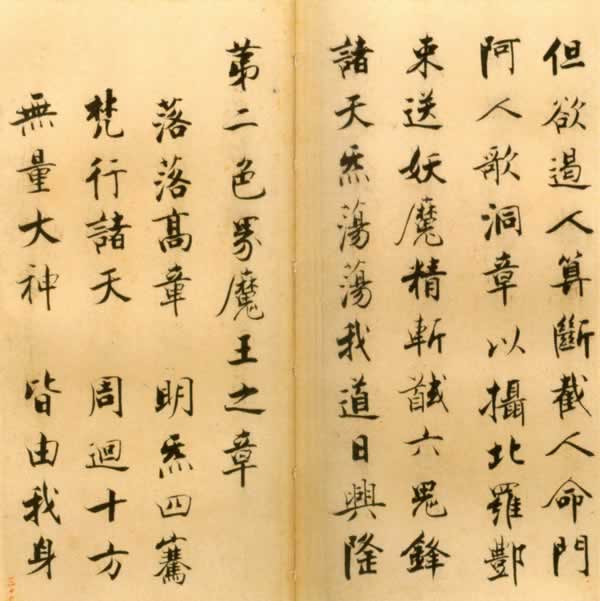 但欲遏人算斷截人命門
阿人歌洞章以攝北羅酆
束送妖魔精斬馘六鬼鋒
諸天炁蕩蕩我道日興隆
第二色界魔王之章
落落髙章　明炁四騫
梵行諸天　周迴十方
無量大神　皆由我身